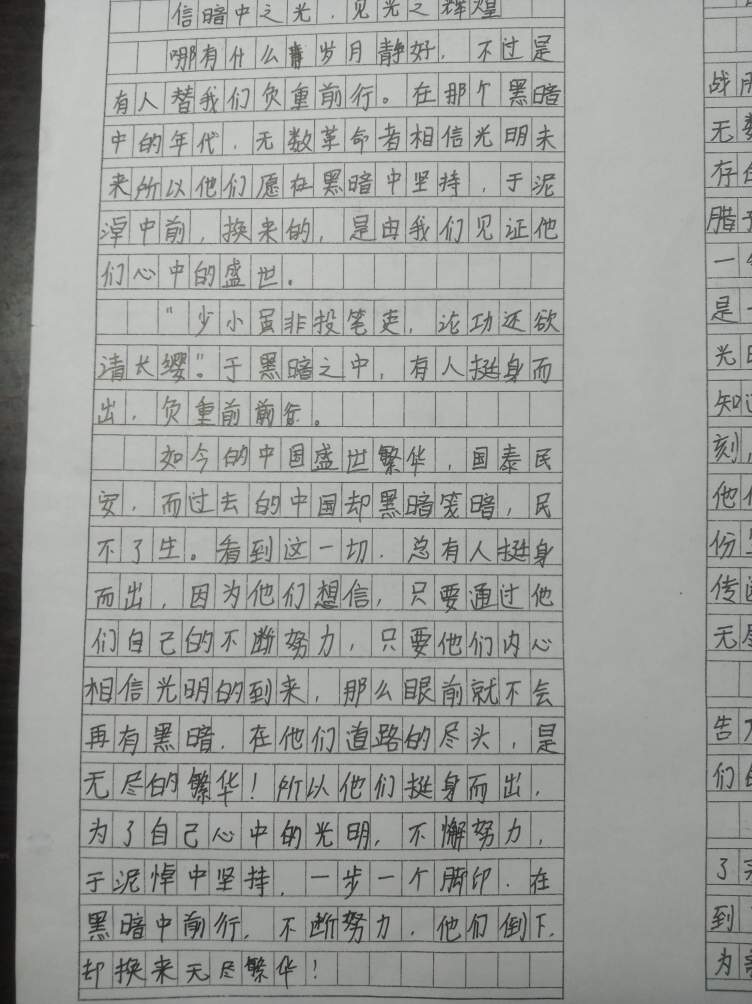 信暗中之光，见光之辉煌
哪有什么岁月静好，不过是
有人替我们负重前行。在那个黑暗
中的年代，无数革命者相信光明未
来所以他们愿在黑暗中坚持，于泥
淖中前，换来的，是由我们见证他
们心中的盛世。
"少小虽非投笔吏，论功还欲
请长缨"。于黑暗之中，有人挺身而
出，负重前前行。
如今的中国盛世繁华，国泰民
安，而过去的中国却黑暗笼暗，民
不了生。看到这一切，总有人挺身
而出，因为他们想信，只要通过他
们自己的不断努力，只要他们内心
相信光明的到来，那么眼前就不会
再有黑暗，在他们道路的尽头，是
无尽的繁华！所以他们挺身而出，
为了自己心中的光明，不懈努力，
于泥悼中坚持，一步一个脚印，在
黑暗中前行，不断努力，他们倒下，
却换来无尽繁华！
战
无数
存在
腊
一
是一
光明
知道
刻，
他们
份
传
无尽
告
们的
了
到
为